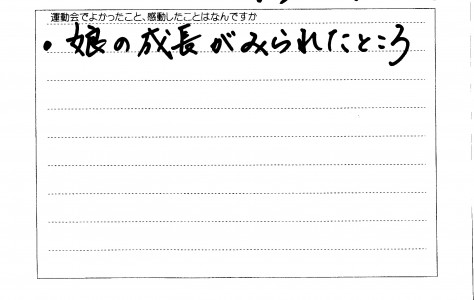 運動会でよかったこと、感動したことはなんですか
・娘の成長がみられたところ